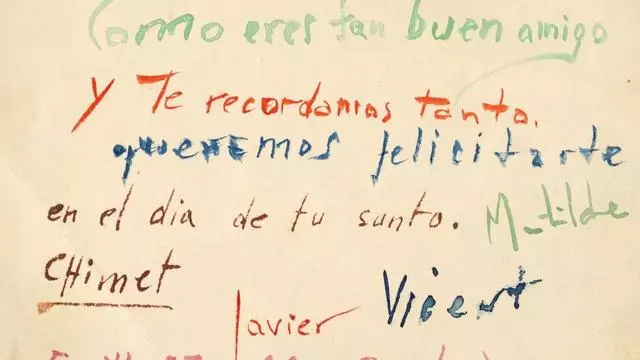 Como eres tan buen amigo
y Te recordamos tanto,
queremos felicitarte
en el dia de tu santo.
Matilde
CHimet
Javier
Vicent